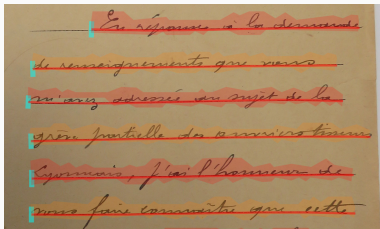 En réponse à la demande
de renseignements que vous
m'avez adressée au sujet de la
grève partielle des ouvriers tisseurs
Lyonnais, j'ai l'honneur de
vous faire connaître que cette